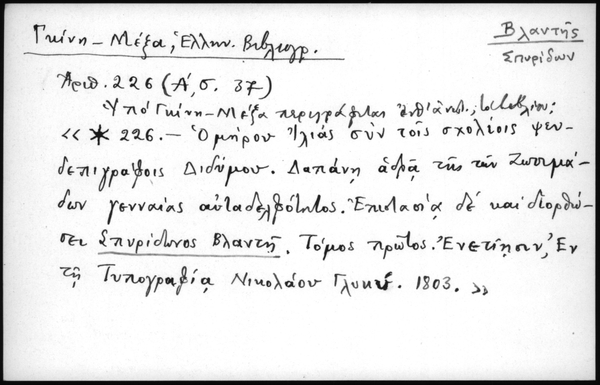 Γκίνη – Μέξα, Ἑλλην. Βιβλιογρ.
Βλαντῆς
Σπυρίδων
Ἀριθ. 226 (Α', σ. 37)
Ὑπὸ Γκίνη – Μέξα περιγράφεται
« * 226. – Ὁμήρου Ἰλιὰς σὺν τοῖς σχολίοις ψευ-
δεπιγράφοις Διδύμου. Δαπάνῃ ἁδρᾷ τῆς τῶν Ζωσιμά-
δων γενναίας αὐταδελφότητος. Ἐπιστασίᾳ δὲ καὶ διορθώ-
σει Σπυρίδωνος Βλαντῆ. Τόμος πρῶτος. Ἐνετίησιν, Ἐν
τῇ Τυπογραφίᾳ Νικολάου Γλυκύ. 1803. »